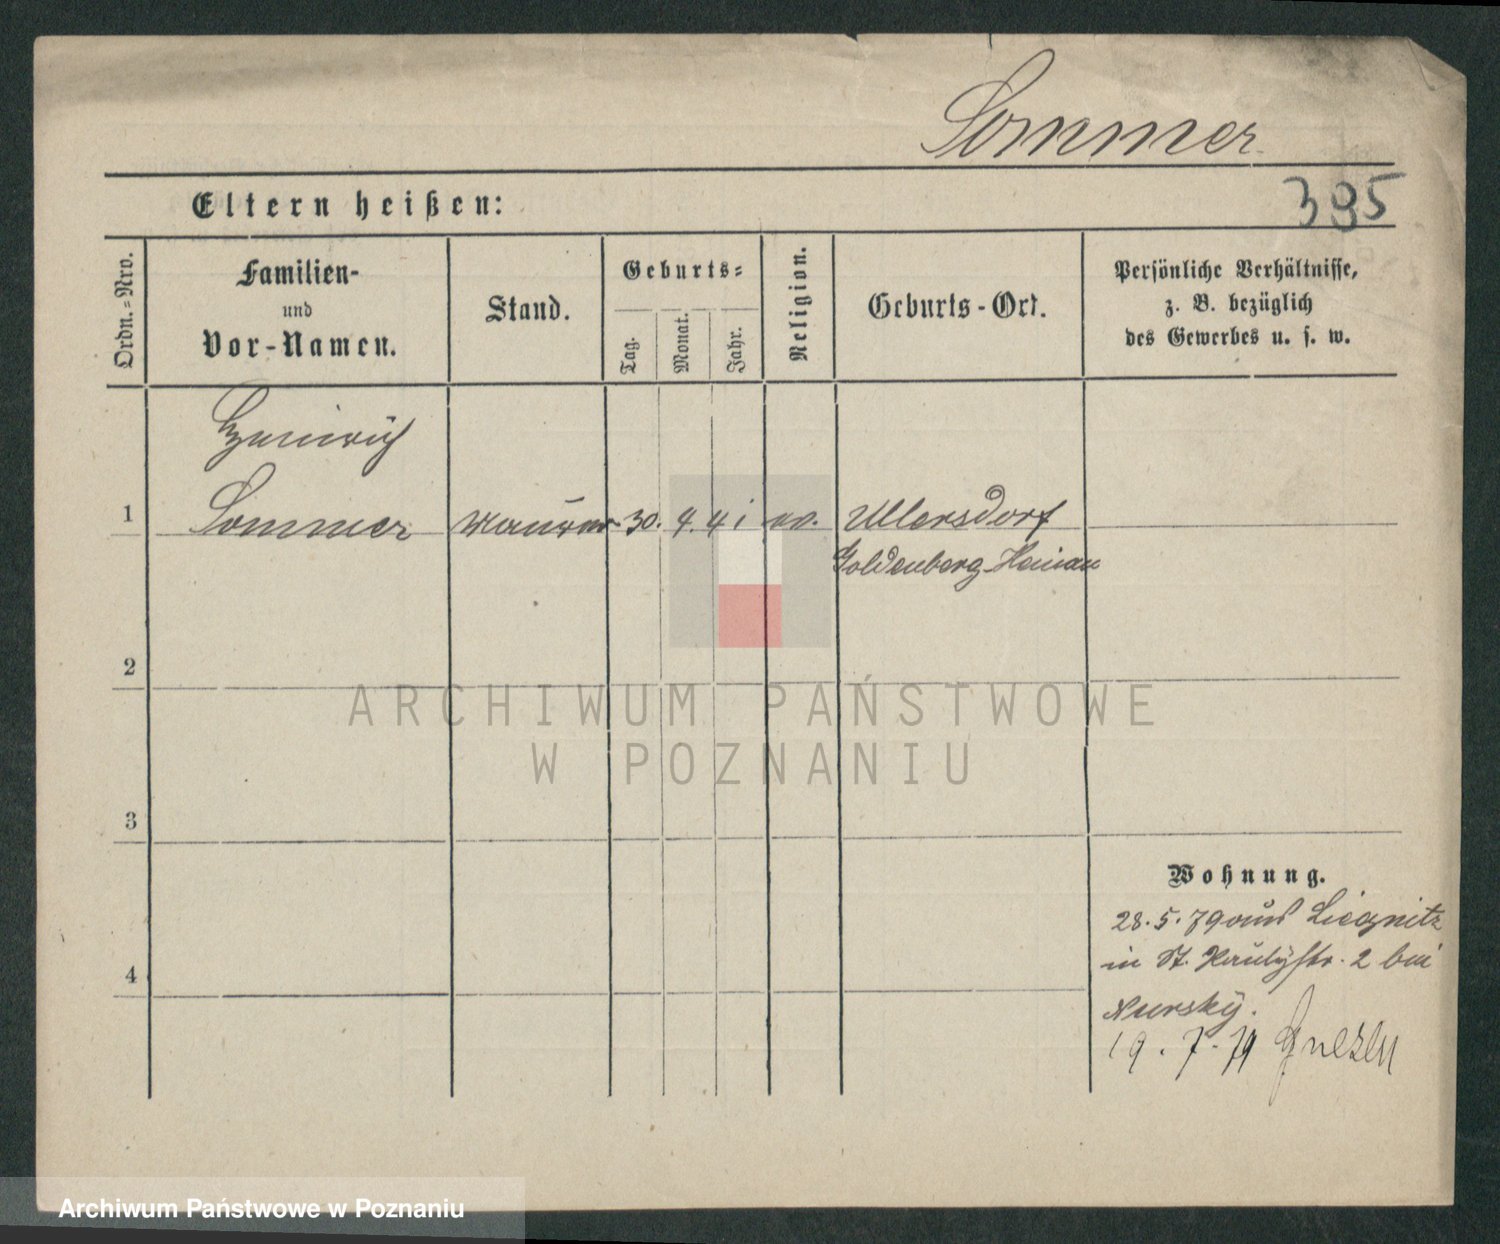 Sommer
395
Eltern heißen:
Ordn.=Nro.
Familien-
und
Vor-Namen.
Stand.
Geburts=
Tag.
Monat.
Jahr.
Religion.
Geburts-Ort.
Persönliche Verhältnisse,
z. B. bezüglich
des Gewerbes u. s. w.
Heinrich
1 Sommer Maurer 30. 4. 41 ev. Ullersdorf
Goldenberg-Hainau
2
ARCHIWUM PAŃSTWOWE
W POZNANIU
3
Wohnung.
28. 5. 79 aus Liegnitz
in St. 2 bei
4
19. 7. 79 Gnesen
Archiwum Państwowe w Poznaniu